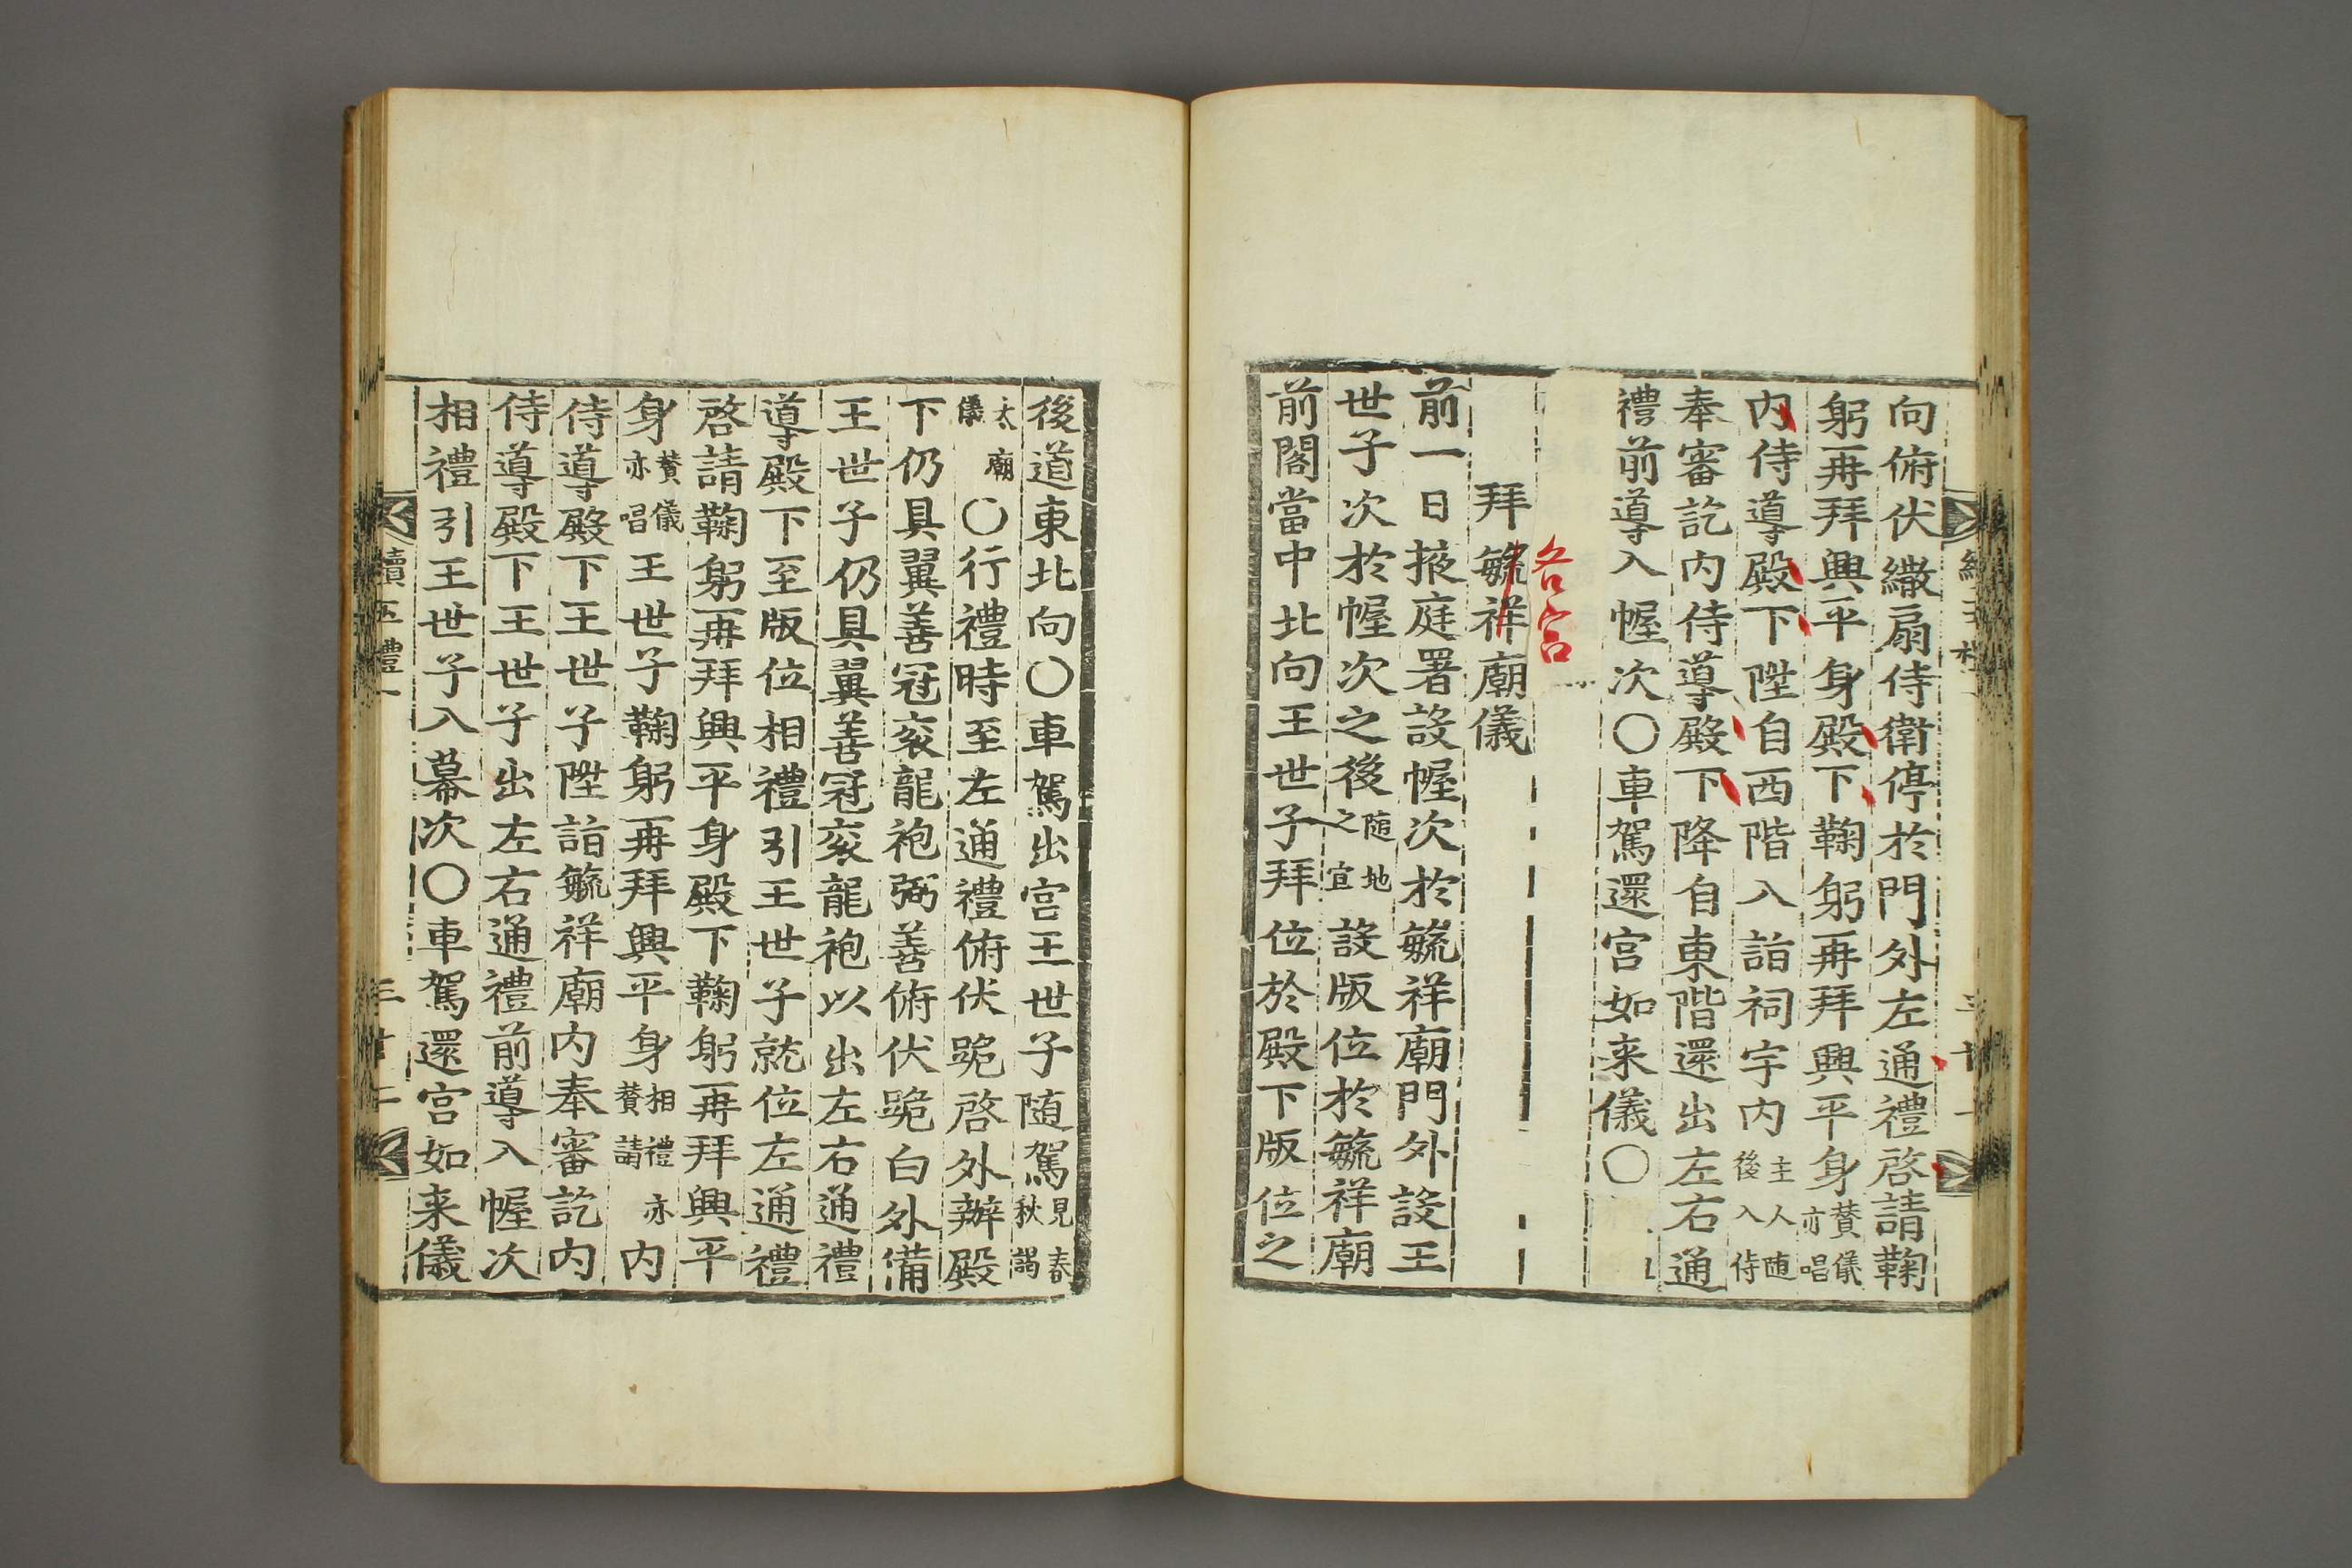 向俯伏繖扇侍衛停於門外左通禮啓請鞠
躬再拜興平身殿下鞠躬再拜興平身賛儀亦唱
内侍導殿下陞自西階入詣祠宇内主人随後入侍
奉審訖内侍導殿下降自東階還出左右通
禮前導入幄次〇車駕還宮如来儀〇
各宮
拜毓祥廟儀
前一日掖庭署設幄次於毓祥廟門外設王
世子次於幄次之後随地之宜設版位於毓祥廟
前閤當中北向王世子拜位於殿下版位之
後道東北向〇車駕出宮王世子随駕見春秋謁
太廟儀〇行禮時至左通禮俯伏跪啓外辦殿
下仍具翼善冠衮龍袍弼善俯伏跪白外備
王世子仍具翼善冠衮龍袍以出左右通禮
導殿下至版位相禮引王世子就位左通禮
啓請鞠躬再拜興平身殿下鞠躬再拜興平
身賛儀亦唱王世子鞠躬再拜興平身相禮亦賛請内
侍導殿下王世子陞詣毓祥廟内奉審訖内
侍導殿下王世子出左右通禮前導入幄次
相禮引王世子入幕次〇車駕還宮如来儀
續五禮一